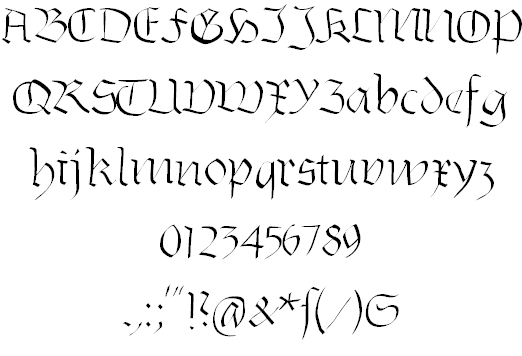 ABCDEFGHIJKLMNOP
QRSTUVWXYZabcdefg
hijklmnopqrstuvwxyz
0123456789
.,:;'"!?@&*ſ(/)S